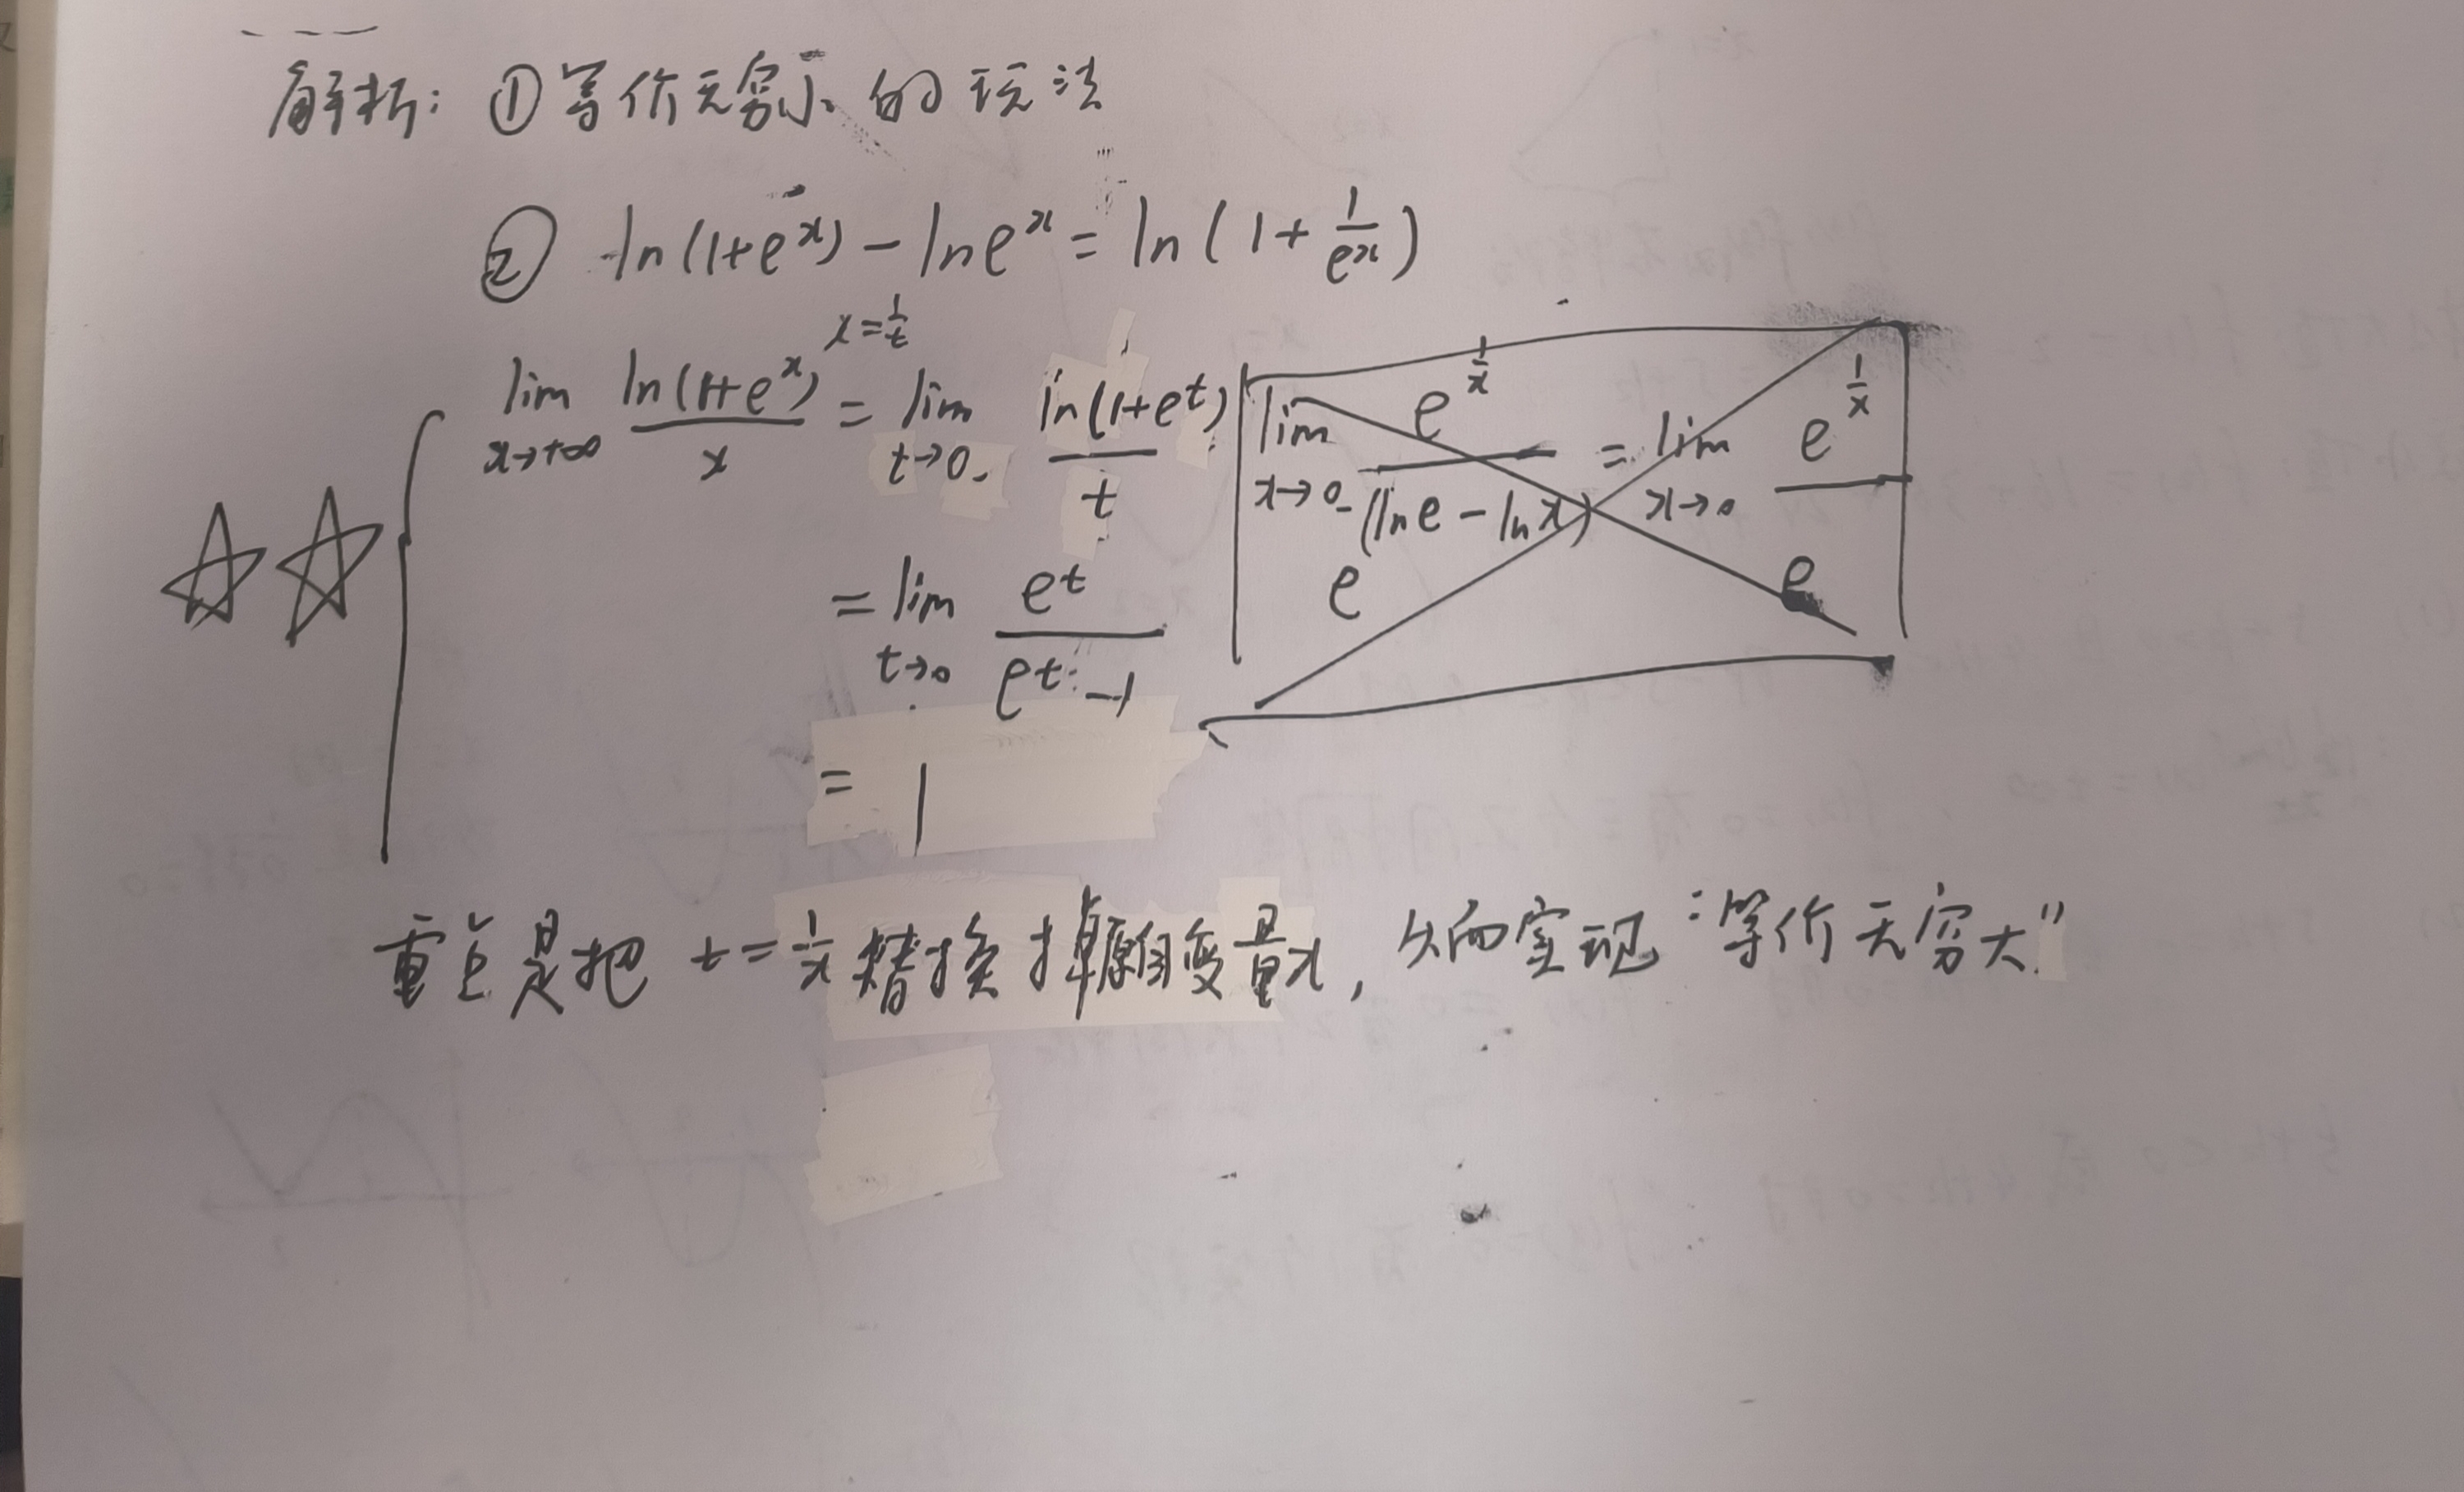 解析: ①等价无穷小的玩法
② ln(1+e^x) - lne^x = ln(1+\frac{1}{e^x})
x=\frac{1}{t}
lim_{x→+∞} \frac{ln(1+e^x)}{x} = lim_{t→0-} \frac{ln(1+e^t)}{t}
= lim_{t→0} \frac{e^t}{e^t-1}
= 1
lim_{x→0-} \frac{e^{\frac{1}{x}}}{(lne-lnx) e} = lim_{x→0} \frac{e^{\frac{1}{x}}}{e}
重点是把 t=\frac{1}{x} 替换掉原自变量x, 从而实现"等价无穷大"